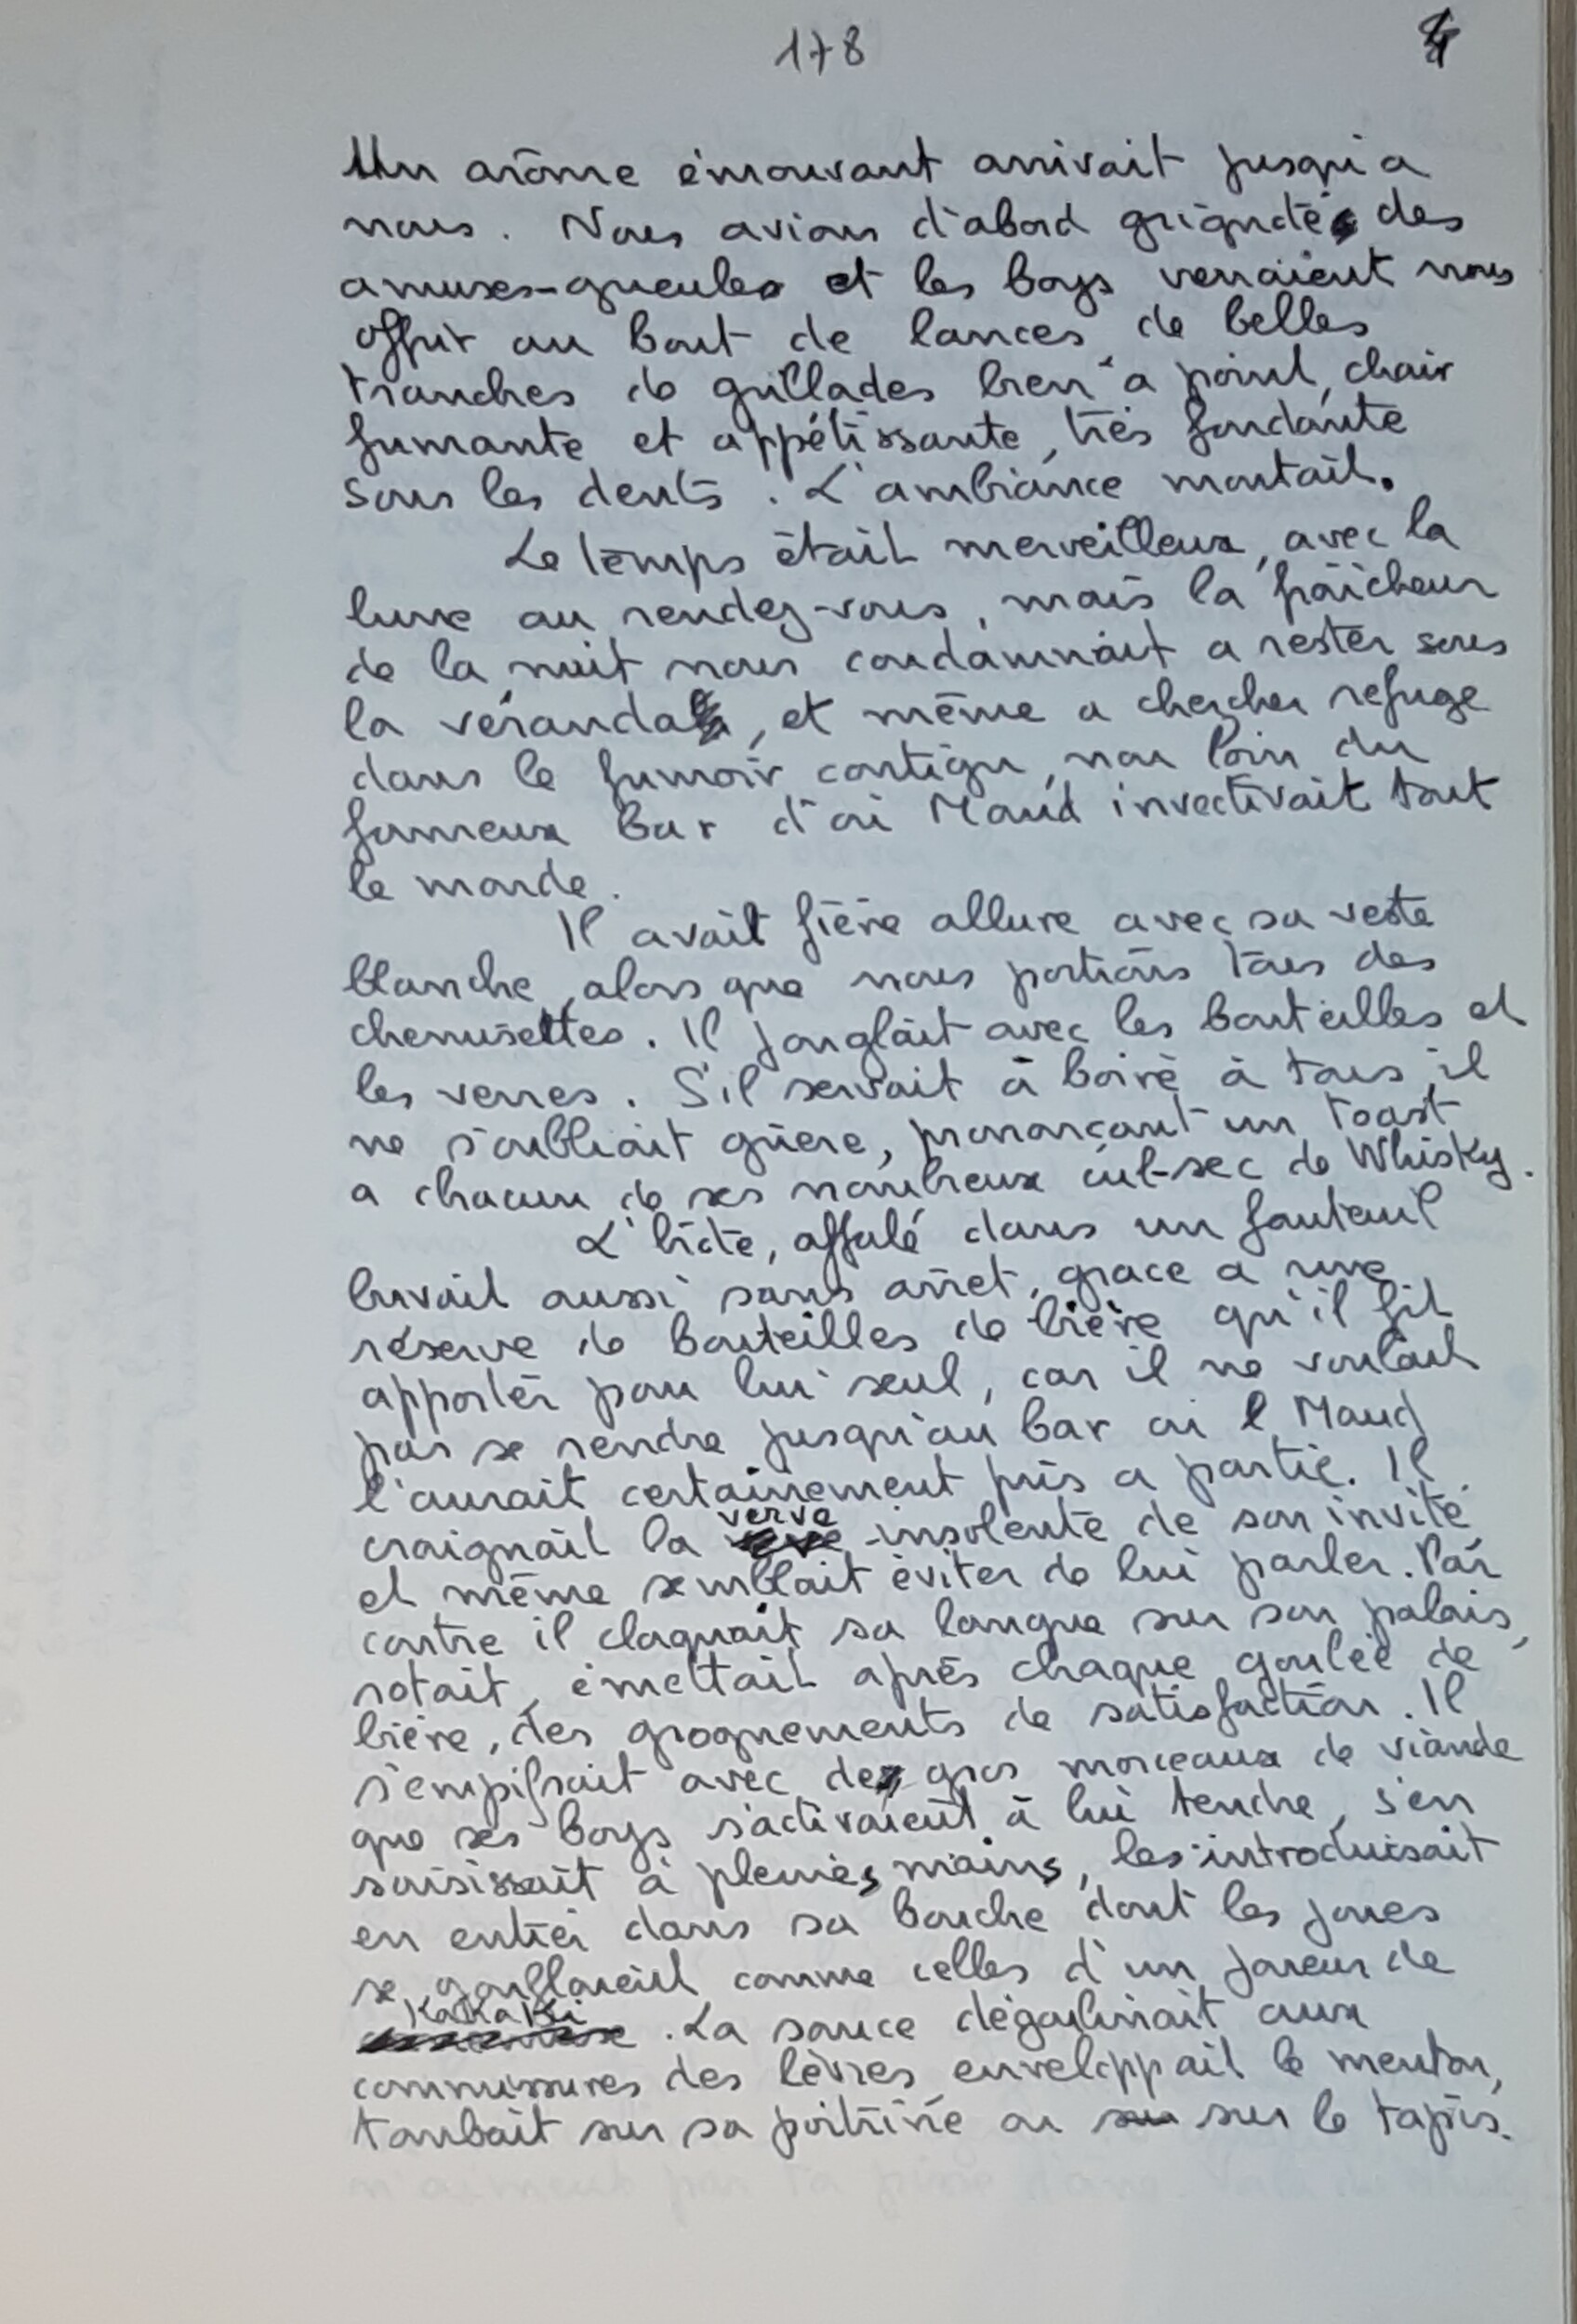 178
Un arôme émouvant arrivait jusqu'a
nous. Nous avions d'abord grignoté des
amuses-gueules et les boys venaient nous
offrir au bout de lances de belles
tranches de grillades bien à point, chair
fumante et appétissante, très fondante
sous les dents. L'ambiance montait.
Le temps était merveilleux, avec la
lune au rendez-vous, mais la fraîcheur
de la nuit nous condamnait a rester sous
la véranda, et même a chercher refuge
dans le fumoir contigu, non loin du
fameux bar d'où Maud invectivait tout
le monde.
Il avait fière allure avec sa veste
blanche, alors que nous portions tous des
chemisettes. Il jonglait avec les bouteilles et
les verres. S'il servait à boire à tous, il
ne s'oubliait guère, prononçant un toast
a chacun de ses nombreux cul-sec de Whisky.
L'hôte, affalé dans un fauteuil
buvait aussi sans arrêt, grace a une
réserve de bouteilles de bière qu'il fit
apporter pour lui seul, car il ne voulait
pas se rendre jusqu'au bar où Maud
l'aurait certainement pris a partie. Il
craignait la verve insolente de son invité
et même semblait éviter de lui parler. Par
contre il claquait sa langue sur son palais,
rotait, émettait après chaque goulée de
bière, des grognements de satisfaction. Il
s'empifrait avec de gros morceaux de viande
que ses boys s'activaient à lui tendre, s'en
saisissait à pleines mains, les introduisait
en entier dans sa bouche dont les joues
se gonflaient comme celles d'un joueur de
KaKaKi. La sauce dégoulinait aux
commissures des lèvres enveloppait le menton,
tombait sur sa poitrine ou sur le tapis.